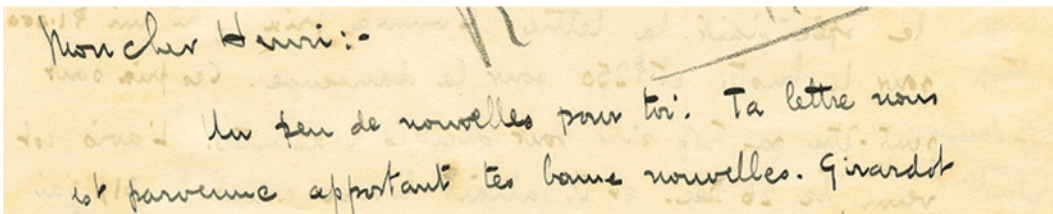 Mon cher Henri:-
Un peu de nouvelles pour toi. Ta lettre nous
est parvenue apportant tes bonne nouvelles. Girardot